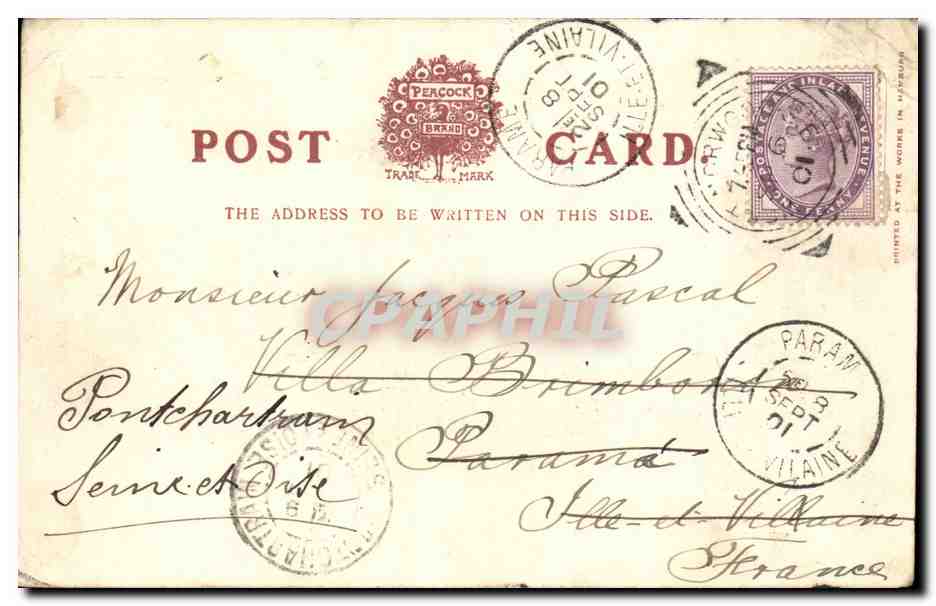 PEACOCK
BRAND
TRADE MARK
POST CARD.
THE ADDRESS TO BE WRITTEN ON THIS SIDE.
POSTAGE AND INLAND REVENUE
PRINTED AT THE WORKS IN HAMBURG
PARAMÉ
ILLE-ET-VILAINE
SEPT
01
NORWOOD
01
Monsieur Jacques Pascal
CPAPHIL
Villa Brimborion
Paramé
Ille-et-Villaine
France
Pontchartrain
Seine et Oise
PARAM
SEPT
01
VILAINE